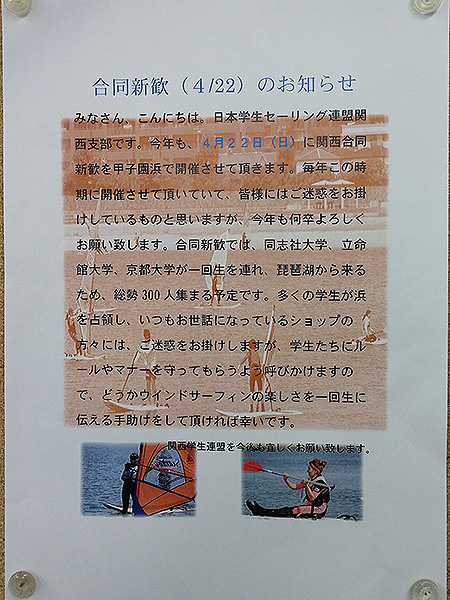 合同新歓（４/22）のお知らせ
みなさん、こんにちは。日本学生セーリング連盟関
西支部です。今年も、４月２２日（日）に関西合同
新歓を甲子園浜で開催させて頂きます。毎年この時
期に開催させて頂いていて、皆様にはご迷惑をお掛
けしているものと思いますが、今年も何卒よろしく
お願い致します。合同新歓では、同志社大学、立命
館大学、京都大学が一回生を連れ、琵琶湖から来る
ため、総勢 300 人集まる予定です。多くの学生が浜
を占領し、いつもお世話になっているショップの
方々には、ご迷惑をお掛けしますが、学生たちにル
ールやマナーを守ってもらうよう呼びかけますの
で、どうかウインドサーフィンの楽しさを一回生に
伝える手助けをして頂ければ幸いです。
関西学生連盟を今後も宜しくお願い致します。